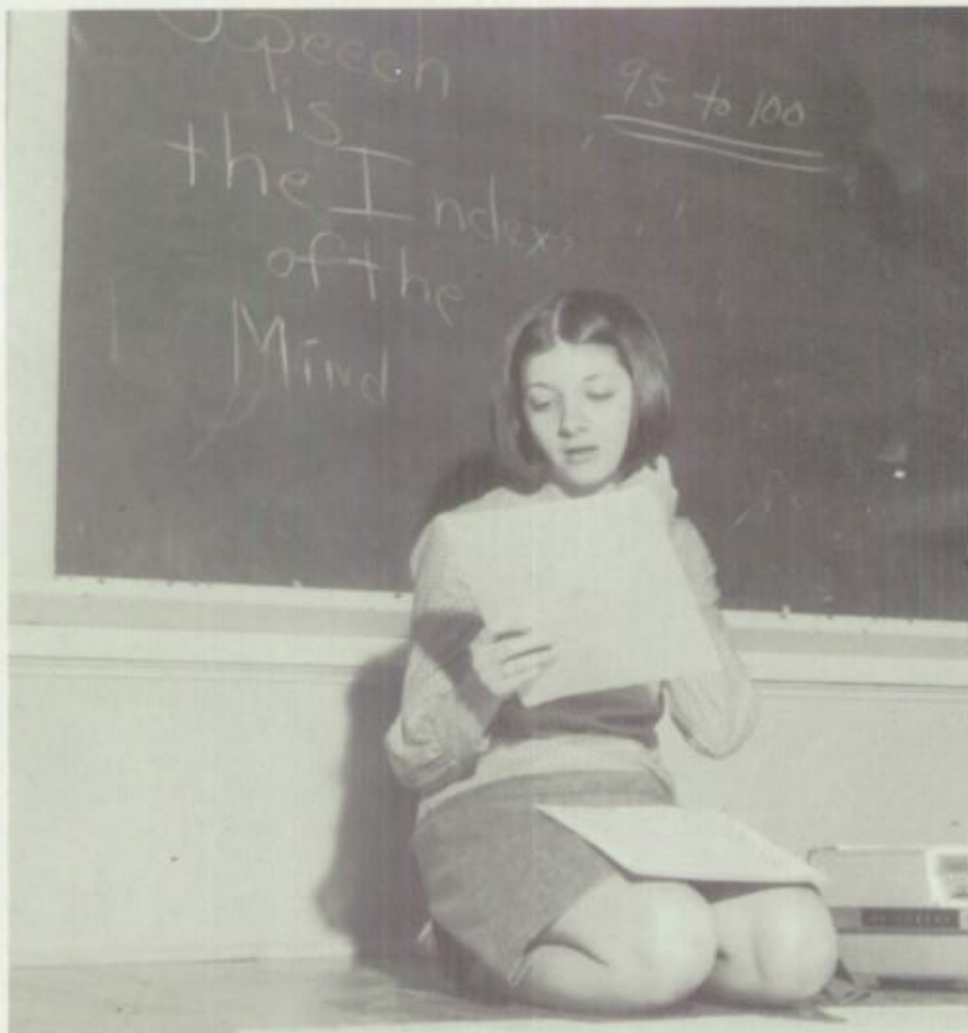 Speech
is
the Index
of the
Mind
95 to 100